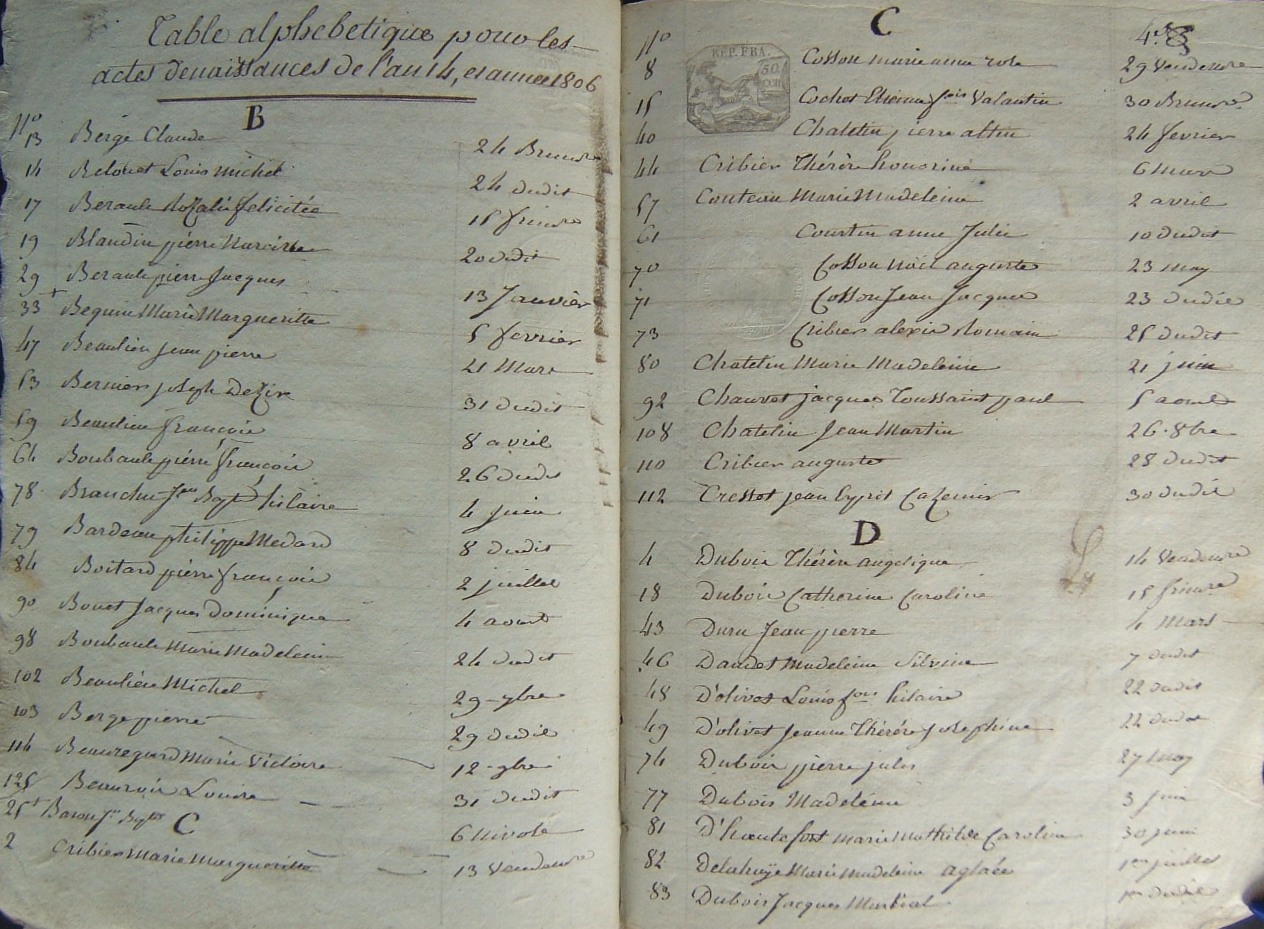 Table alphebetique pour les
actes denaissances de l'an 14, et annee 1806
B
n°
13 Bergé Claude 24 Brumre
14 Belouet Louis Michel 24 dudit
17 Berault Rozalié felicitée 15 frimre
19 Blandin pierre Narcisse 20 dudit
29 Berault pierre Jacques 13 Janvier
33 Bequin Marie Margueritte 5 fevrier
47 Beaulieu Jean pierre 21 Mars
53 Bernier joseph Dezire 31 dudit
59 Beaulieu francois 8 avril
64 Boubault pierre francois 26 dudit
78 Branchu Jean Bapte hilaire 4 juin
79 Bardeau philippe Medard 8 dudit
84 Boitard pierre francois 2 juillet
90 Bouet Jacques Dominique 4 aout
98 Boubault Marie Madeleine 24 dudit
102 Beaulieu Michel 29 7bre
103 Berge pierre 29 dudit
114 Beauregard Marie Victoire 12 9bre
125 Beauvoir Louise 31 dudit
25 Baron Jn Bapte 6 Nivose
C
2 Cribier Marie Margueritte 13 Vendemre
C
n°
REP. FRA.
50
8 Cosson marie anne rose 29 Vendemre
15 Cochet Etienne fois Valantin 30 Brumre
40 Chatelin pierre altin 24 fevrier
44 Cribier Thérèse honorine 6 Mars
57 Couteau Marie Madeleine 2 avril
61 Courtin anne Julie 10 dudit
70 Cosson Noël auguste 23 may
71 Cosson Jean Jacques 23 dudit
73 Cribier alexis Romain 25 dudit
80 Chatelin Marie Madeleine 21 juin
92 Chauvet jacques Toussaint paul 5 aout
108 Chatelin Jean Martin 26 8bre
110 Cribier auguste 28 dudit
112 Cressot jean Cazemir 30 dudit
D
4 Dubois Thérèse angelique 14 Vendemre
18 Dubois Catherine Caroline 15 frimre
43 Duru Jean pierre 4 Mars
46 Daudet Madeleine Silvine 7 dudit
48 D'olivet Louis fois hilaire 22 dudit
49 D'olivet Jeanne Thérèse josephine 22 dudit
74 Dubois pierre jules 27 may
77 Dubois Madeleine 3 juin
81 D'hautefort marie Mathilde Caroline 30 juin
82 Delahaÿe Marie Madeleine aglaée 1er juillet
83 Dubois Jacques Martial 1er dudit